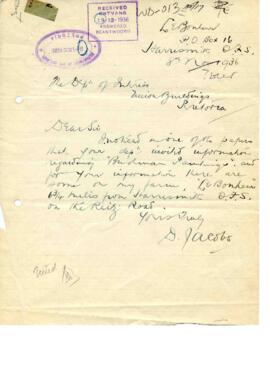 RECEIVED
ONTVANG
19-12-1936
ANSWERED
BEANTWOORD
Le Bonheur
P.O Box 16
Harrismith O.F.S.
1936
The Dept of Interior
Union Buildings
Pretoria
Dear Sir
I noticed in one of the papers
that your dep. invited information
regarding "Bushman Paintings", and
for your information there are
some on my farm, "Le Bonheur"
6¼ miles from Harrismith O.F.S.
on the Reitz Road.
Yours truly
D. Jacobs